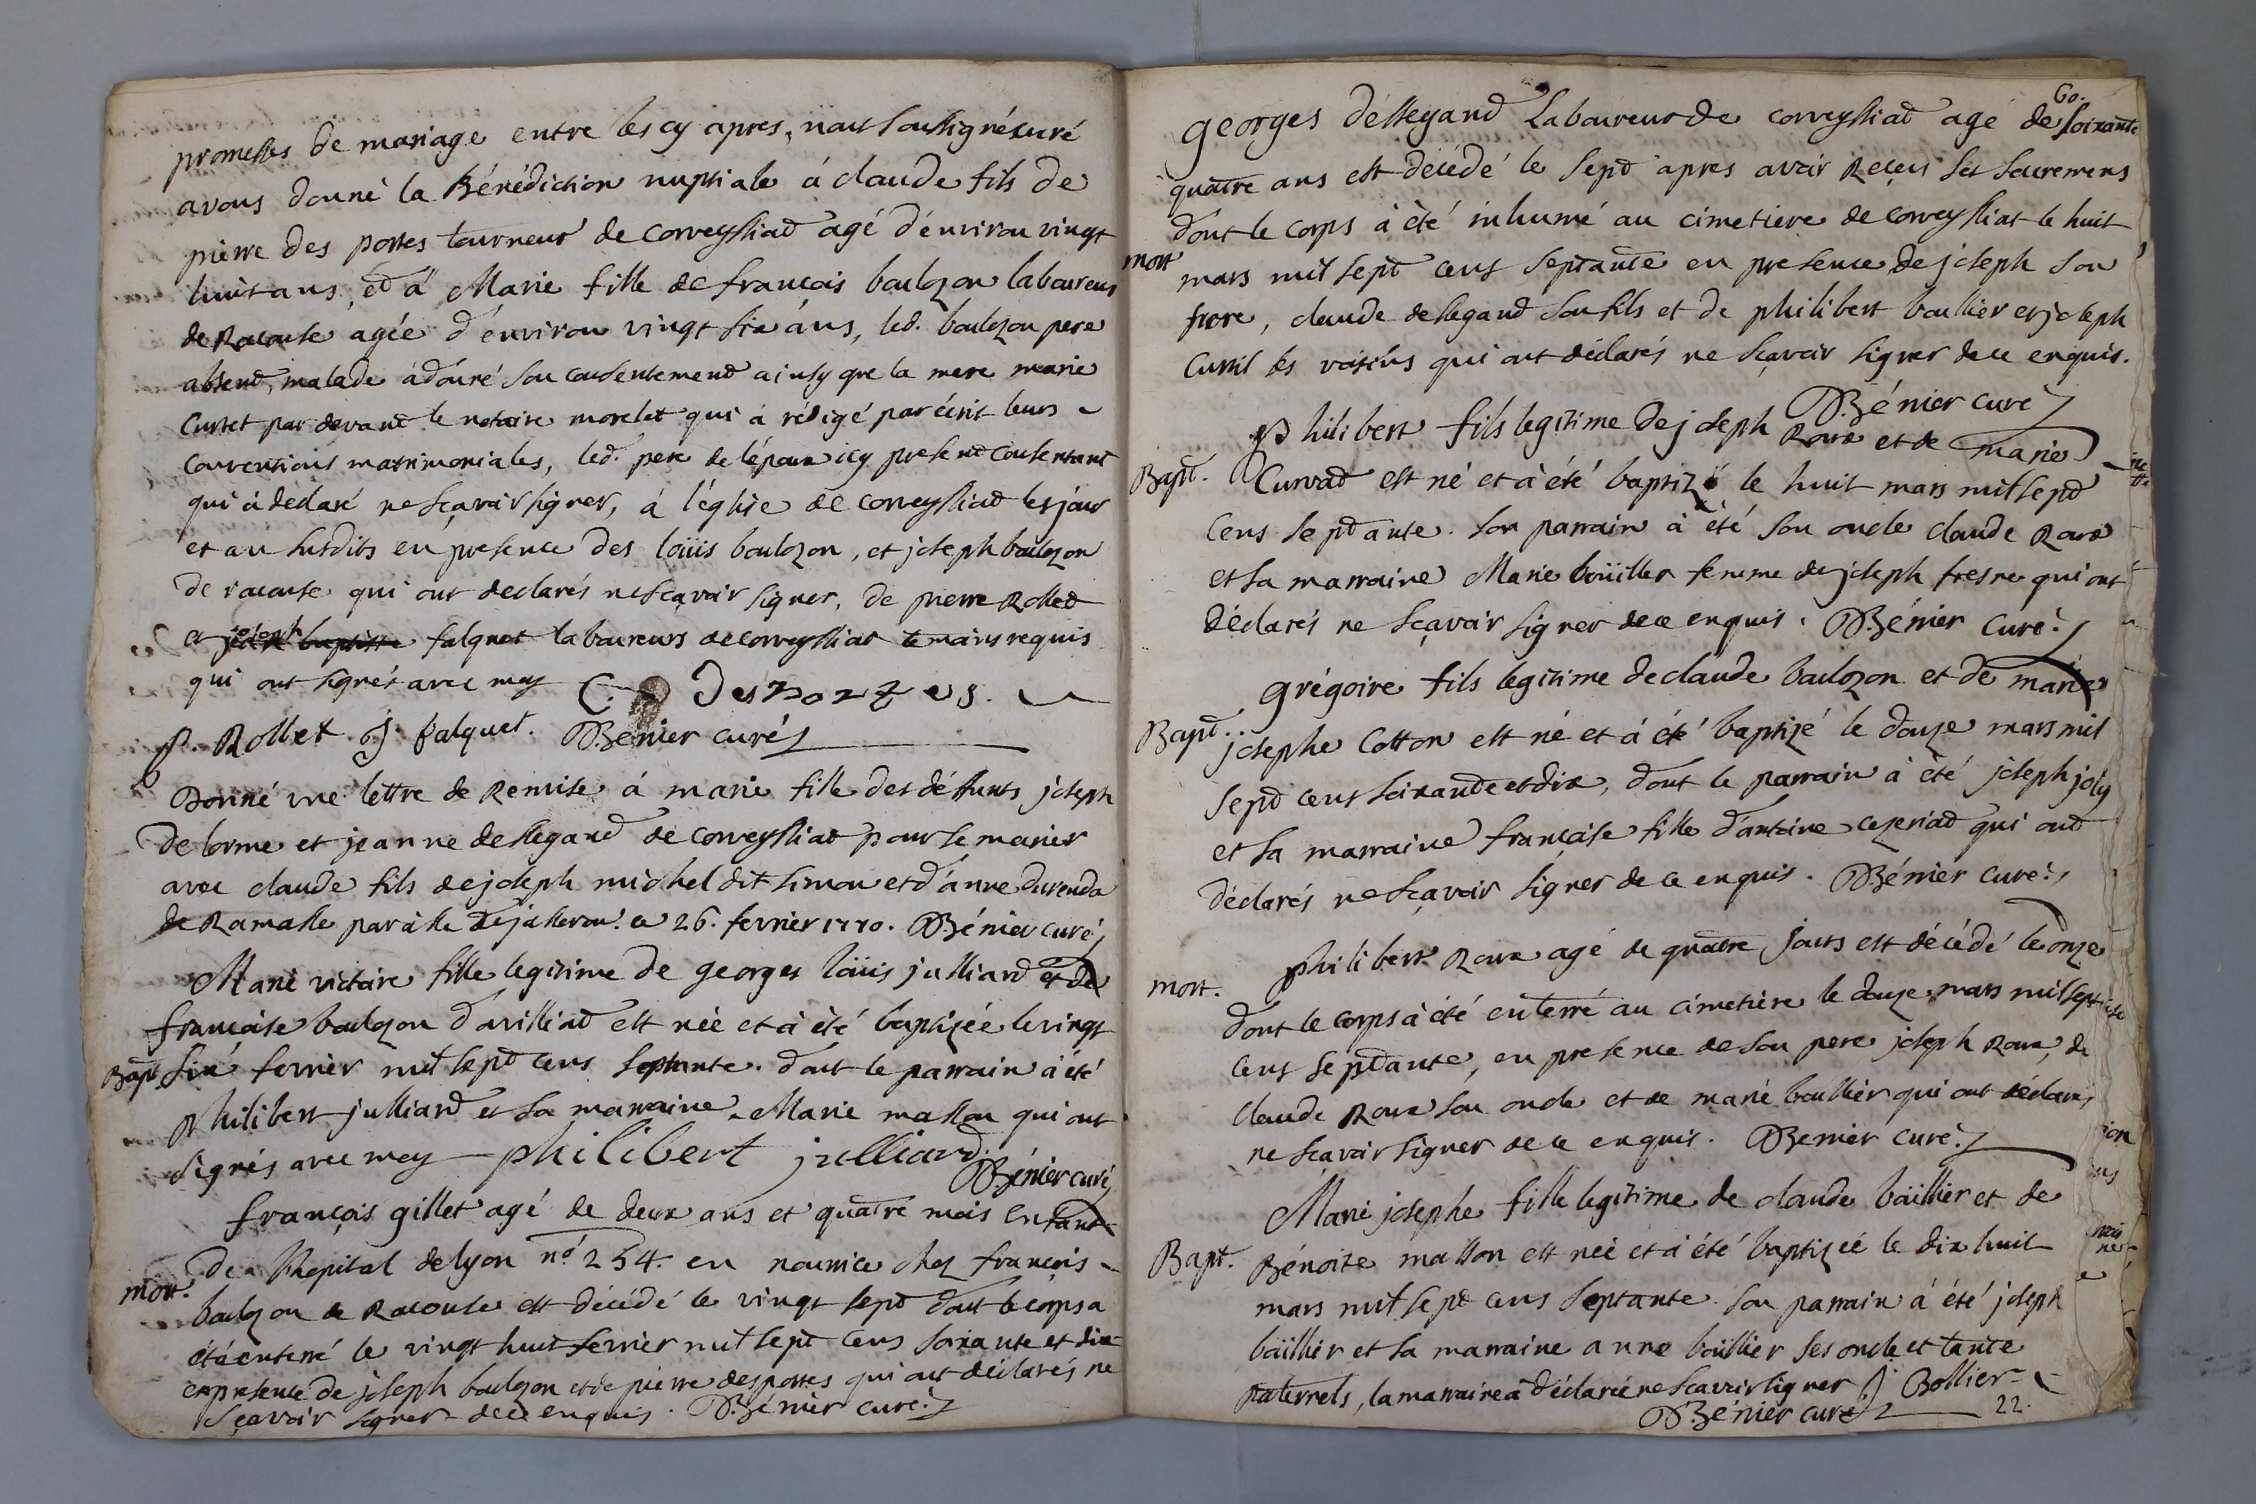 promesses de mariage entre les cy apres, nous soussigné curé
avons donné la Bénédiction nuptiale á claude fils de
pierre des portes tourneur de corveyssiad agé d'environ vingt
huit ans, ed á Marie fille de francois boulozon laboureur
de Racouse agée d'environ vingt six áns, led. boulozon pere
absend, malade á donné son consentemend ainsy que la mere marie
Curtet par devand le notaire morelet qui á rédigé par écrit leurs
conventions matrimoniales, led. pere de l'époux icy presend consentant
qui á declaré ne sçavoir signer, á l'église de corveyssiad les jour
et an susdits en presence des loüis boulozon, et joseph boulozon
de racouse qui ont declarés ne sçavoir signer, de pierre Rolled
et joseph falquet laboureurs de corveyssiat temoins requis
qui ont signés avec moy C. Desportes.
p. Rollet J. falquet. Bénier curé
Donné une lettre de Remise á marie fille des déffunts joseph
delorme et jeanne dellegand de corveyssiad pour se marier
avec claude fils de joseph michel dit simon et d'anne durenda
de Ramasse paroisse de jasseron. ce 26. fevrier 1770. Bénier curé
Marie victoire fille legitime de georges loüis julliard et de
françoise boulozon d'avilliad est née et á été baptizée le vingt
Bapt. six fevrier mil sepd cens septante. dont le parrain á été
philibert julliard et sa marraine Marie masson qui ont
signés avec moy philibert julliard.
Bénier curé
françois gillet agé de deux ans et quatre mois enfant
de l'hopital de lyon n.º 254. en nourrice chez françois
mort. boulozon de Racouse est décédé le vingt sepd dont le corps a
été enterré le vingt huit fevrier mil sept cens soixante et dix
en presence de joseph boulozon et de pierre desportes qui ont déclarés ne
sçavoir signer de ce enquis. Bénier curé
60.
georges déllegand Laboureur de corveyssiad agé de soixante
quatre ans est décédé le sepd apres avoir Reçeu ses sacremens
dont le corps á été inhumé au cimetiere de corveyssiat le huit
mort mars mil sepd cens septante en presence de joseph son
frere, claude dellegand son fils et de philibert boullier et joseph
curtil ses voisins qui ont déclarés ne sçavoir signer de ce enquis.
Bénier curé
philibert fils legitime de joseph Roux et de marie
Bapt. Curvad est né et á été baptizé le huit mars mil sepd
cens sepdante. son parrain á été son oncle claude Roux
et sa marraine Marie boüiller femme de joseph fresne qui ont
déclarés ne sçavoir signer de ce enquis. Bénier curé.
grégoire fils legitime de claude boulozon et de marie
Bapd. josephe Cotton est né et á été baptizé le douze mars mil
sepd cens soixande et dix, dont le parrain á été joseph joly
et sa marraine françoise fille d'antoine cezeriad qui ond
déclarés ne sçavoir signer de ce enquis. Bénier curé.
philibert Roux agé de quatre jours est décédé le onze
mort. dont le corps á été enterré au cimetiere le douze mars mil sept
cens sepdante, en presence de son pere joseph Roux, de
claude Roux son oncle et de marie boullier qui ont déclarés
ne sçavoir signer de ce enquis. Bénier curé.
Marie josephe fille legitime de claude boüllier et de
Bapt. Bénoite masson est née et á été baptizée le dix huit
mars mil sepd cens septante son parrain á été joseph
boüllier et sa marraine anne boüllier ses oncle et tante
paternels, la marraine á déclaré ne sçavoir signer J. Bollier
Bénier curé
22.